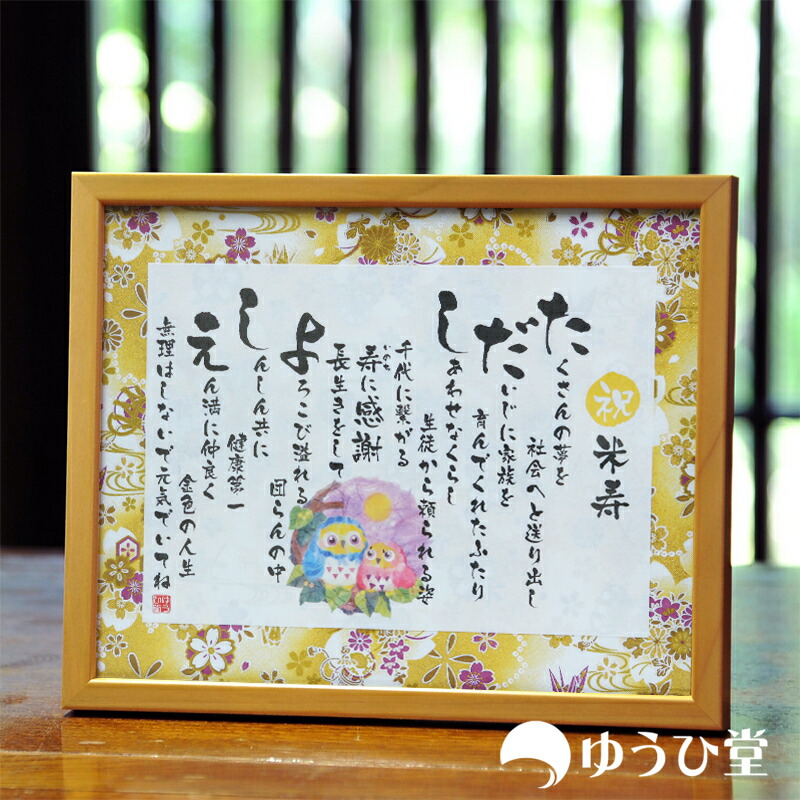 祝 米寿
たくさんの夢を
社会へと送り出し
だいじに家族を
育んでくれたふたり
しあわせなくらし
生徒から頼られる姿
千代に繋がる
寿に感謝
いのち
長生きをして
よろこび溢れる
団らんの中
しんしん共に
健康第一
えん満に仲良く
金色の人生
無理はしないで元気でいてね
ゆうひ堂